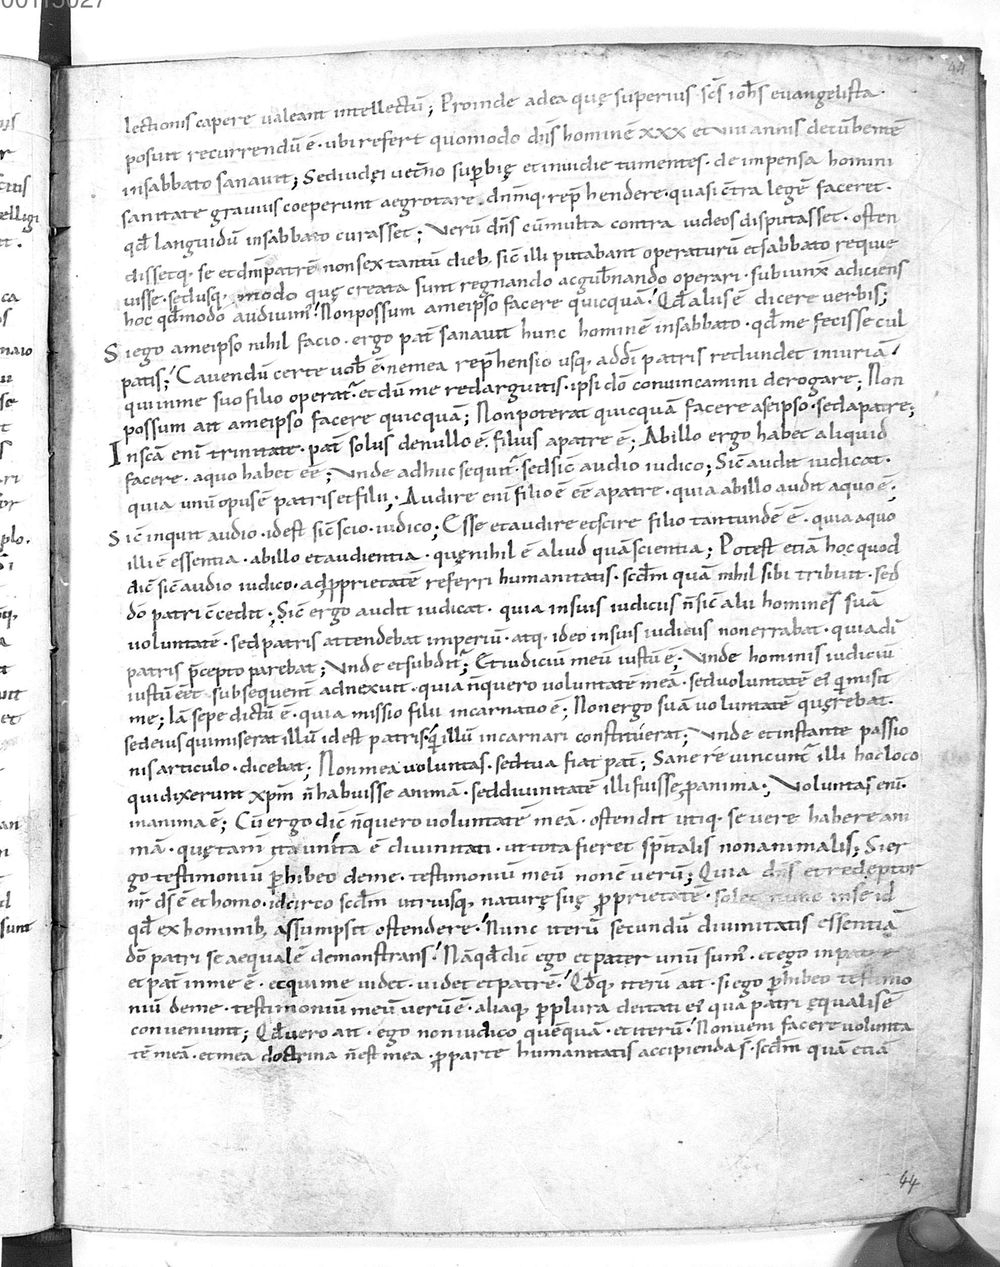 00115027
44
lectionis capere valeant intellectū; Proinde ad ea quę superius scs iohs evangelista.
posuit recurrendū ē. ubi refert quomodo dn̄s hominē xxx et viii annis decūbentē
in sabbato sanavit; Sed iudęi vetn̄o supbię et invidię tumentes. de impensa homini
sanitate gravius coeperunt aegrotare. dn̄mq. rep̄hendere. quasi c̄tra legē faceret.
qd̄ languidū in sabbato curasset; Verū dn̄s cū multa contra iudeos disputasset. osten
dissetq. se et dm̄ patrē non sex tantū dieb, sic̄ illi putabant operaturū et sabbato requie
visse. sed usq, modo quę creata sunt regnando ac gub̄nando operari. subiunx̄ adiciens
hoc qd̄ modo audivim; Non possum a me ipso facere quicquā; Qd̄ aliis ē dicere verbis;
Si ego a me ipso nihil facio. ergo pat̄ sanavit hunc hominē in sabbato. qd̄ me fecisse cul
patis; Cavendū certe vob̄ ē. ne mea rep̄hensio usq, ad dī patris redundet iniuriā;
qui in me suo filio operat̄. et dū me redarguitis. ipsi dō convincamini derogare; Non
possum ait a me ipso facere quicquā; Non poterat quicquā facere a se ipso. sed a patre;
In scā enī trinitate. pat̄ solus de nullo ē. filius a patre ē; Ab illo ergo habet aliquid
facere. a quo habet eē; Unde adhuc sequit̄. sed sic̄ audio iudico; Sic̄ audit iudicat.
quia unū opus ē patris et filii; Audire enī filio ē eē a patre. quia ab illo audit a quo ē;
Sic̄ inquit audio. id est sic̄ scio. iudico; Esse et audire et scire filio tantundē ē. quia a quo
illi ē essentia. ab illo et audientia. quę nihil ē aliud quā scientia; Potest etiā hoc quod
dic̄ sic̄ audio iudico. ad pprietatē referri humanitatis. scdm̄ quā nihil sibi tribuit. sed
dō patri c̄cedit; Sic̄ ergo audit iudicat. quia in suis iudiciis n̄ sic̄ alii homines suā
voluntatē. sed patris attendebat imperiū. atq. ideo in suis iudiciis non errabat. quia dī
patris p̄cepto parebat; Unde et subdit̄; Et iudiciū meū iustū ē; Unde hominis iudiciū
iustū eēt. subsequent̄ adnexuit. quia n̄ quero voluntatē meā. sed voluntatē eī q̄ misit
me; Iā sepe dictū ē. quia missio filii incarnatio ē; Non ergo suā voluntatē quęrebat.
sed eius qui miserat illū id est patris q̄ illū incarnari constituerat; Unde et instante passio
nis articulo. dicebat; Non mea voluntas. sed tua fiat pat̄; Sane revincunt̄ illi hoc loco
qui dixerunt xpm̄ n̄ habuisse animā. sed divinitatē illi fuisse p anima; Voluntas enī.
in anima ē; Cū ergo dic̄ n̄ quero voluntatē meā. ostendit utiq. se vere habere ani
mā. quę tam̄ ita unita ē divinitati. ut tota fieret sp̄italis non animalis; Si er
go testimoniū p̄hibeo de me. testimoniū meū non ē verū; Quia dn̄s et redēptor
nr̄ ds̄ ē et homo. idcirco scdm̄ utriusq, naturę suę pprietatē. solet nunc in se id
qd̄ ex hominib, assumpsit ostendere. Nunc iterū secundū divinitatis essentiā
dō patri se aequalē demonstrans. Nā qd̄ dic̄ ego et pater unū sum̄. et ego in patre
et pat̄ in me ē. et qui me videt. videt et patrē. Qd̄q, iterū ait. si ego p̄hibeo testimo
niū de me. testimoniū meū verū ē. aliaq, p plura deitati eī qua patri ęqualis ē
conveniunt; Qd̄ vero ait. ego non iudico quēquā. et iterū. Non veni facere volunta
tē meā. et mea doctrina n̄ est mea. p parte humanitatis accipienda s̄. scdm̄ quā etiā
44